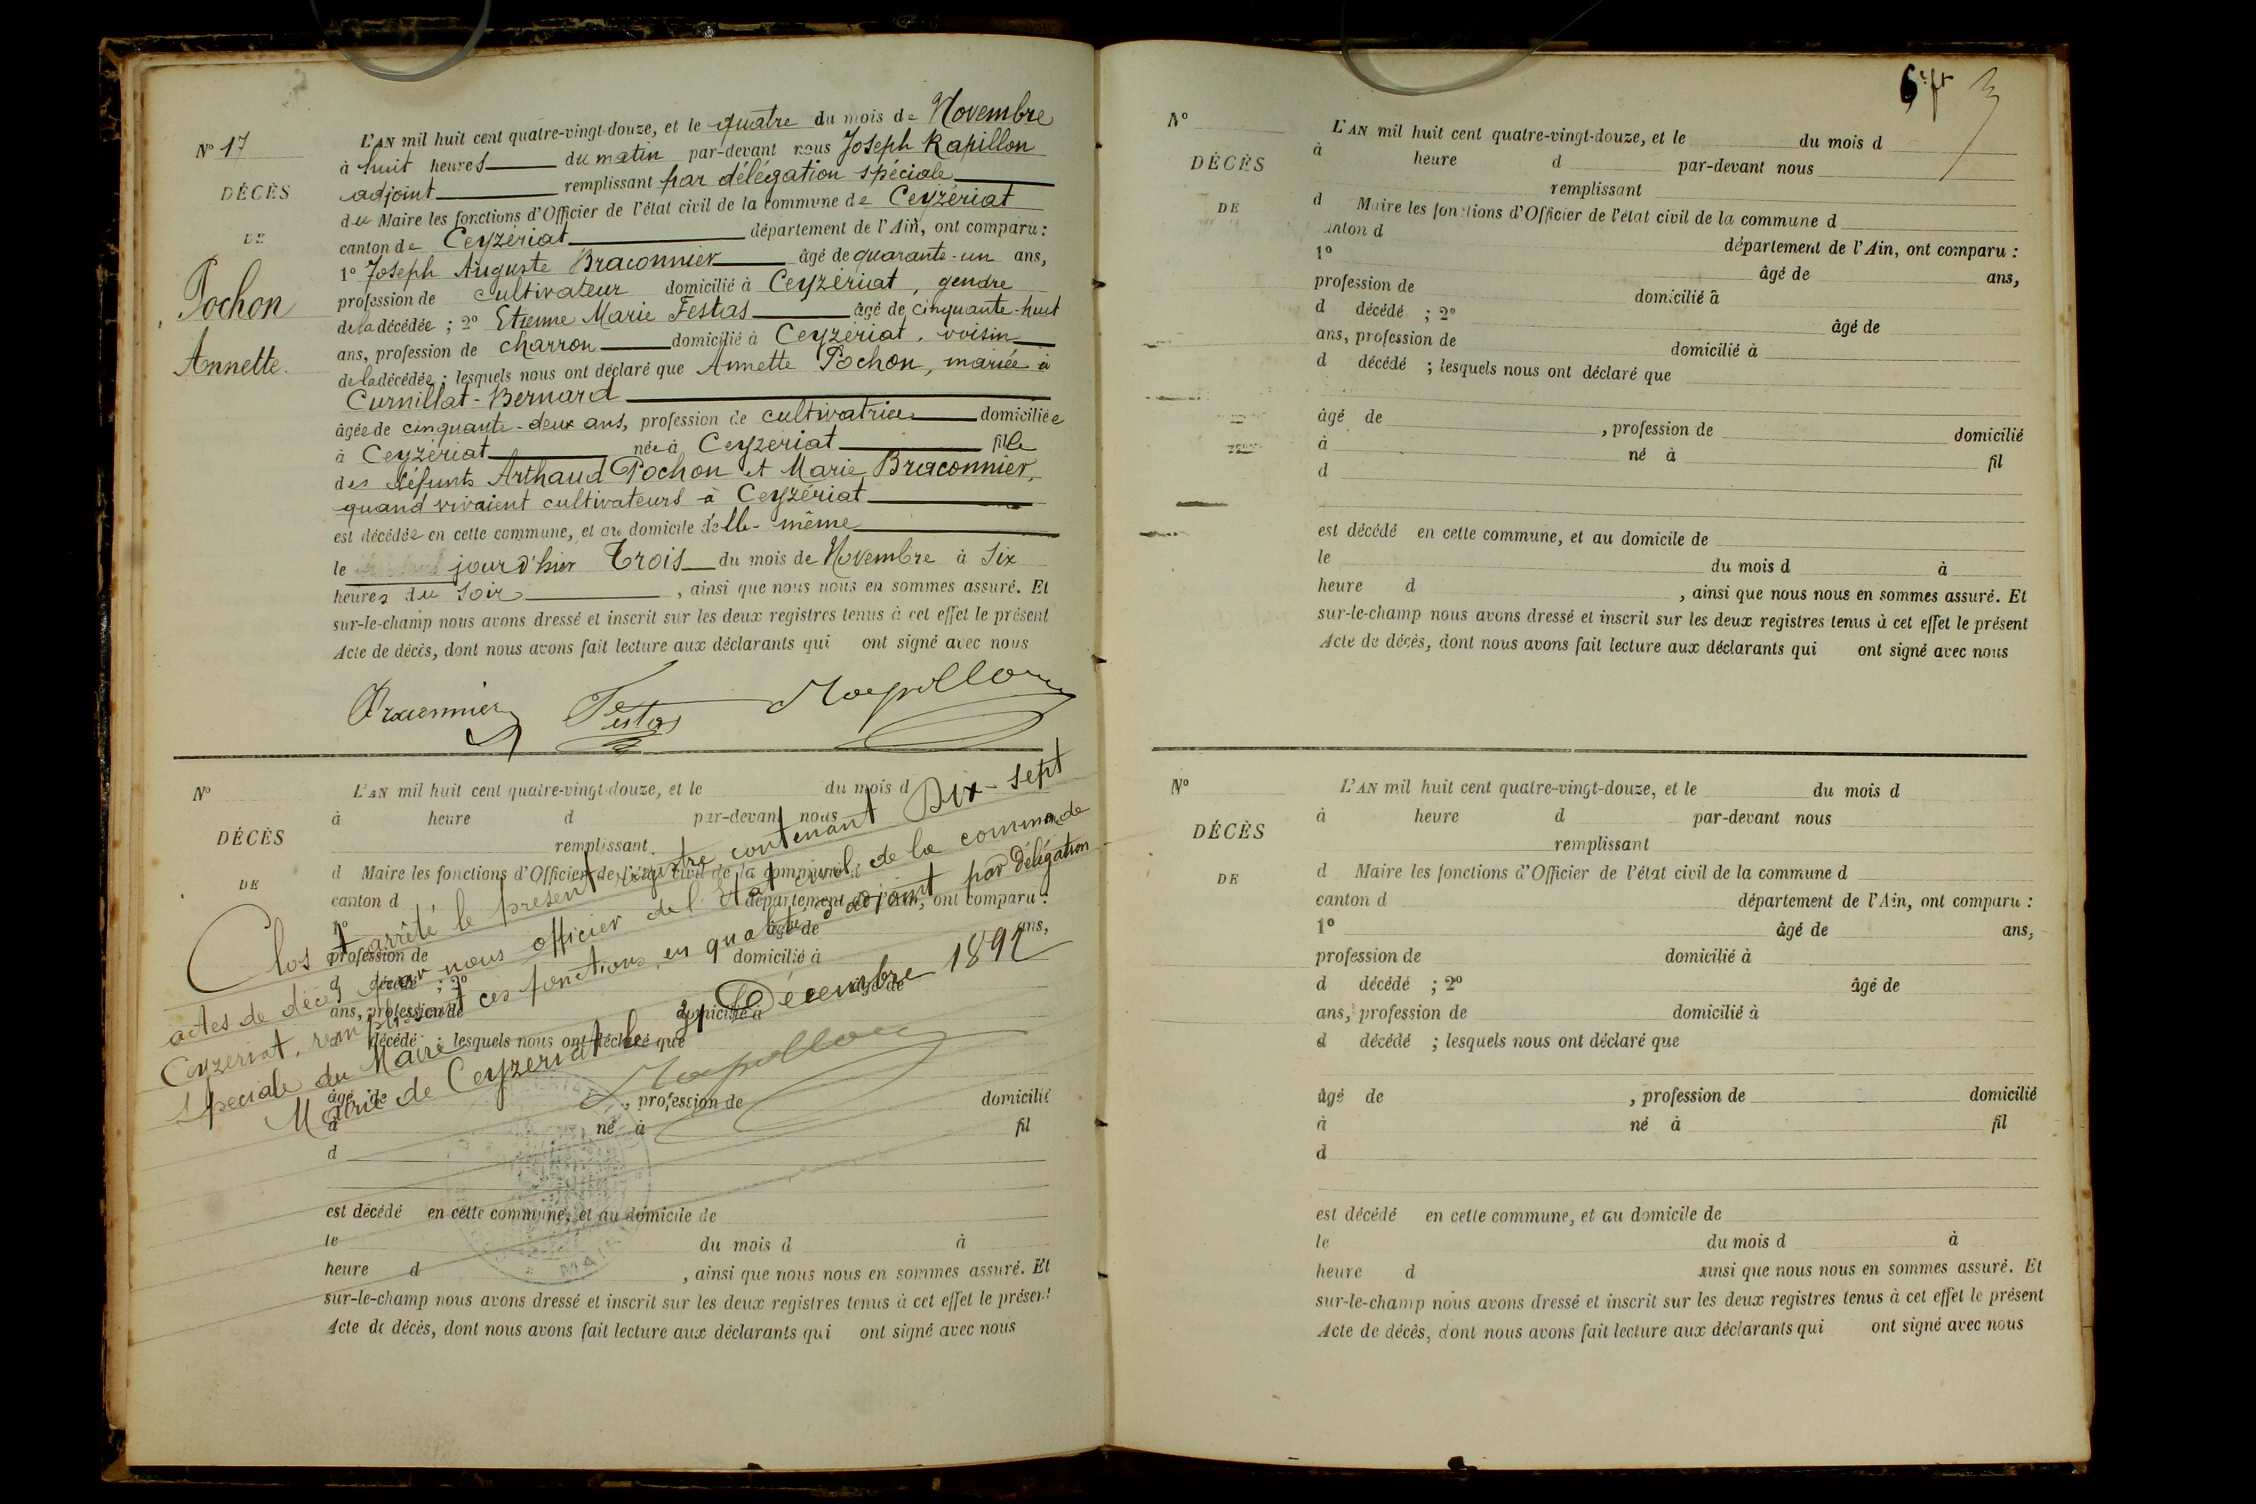 Nº 17
DÉCÈS
DE
Pochon
Annette.
L'AN mil huit cent quatre-vingt-douze, et le quatre du mois de Novembre
à huit heures du matin par-devant nous Joseph Rapillon
adjoint remplissant par délégation spéciale
du Maire les fonctions d'Officier de l'état civil de la commune de Ceyzériat
canton de Ceyzériat département de l'Ain, ont comparu :
1º Joseph Auguste Braconnier âgé de quarante-un ans,
profession de cultivateur domicilié à Ceyzériat, gendre
de la décédée ; 2º Etienne Marie Festas âgé de cinquante-huit
ans, profession de charron domicilié à Ceyzériat, voisin
de la décédée ; lesquels nous ont déclaré que Annette Pochon, mariée à
Curnillat-Bernard
âgée de cinquante-deux ans, profession de cultivatrice domiciliée
à Ceyzériat née à Ceyzeriat fille
des défunts Arthaud Pochon et Marie Braconnier,
quand vivaient cultivateurs à Ceyzériat
est décédée en cette commune, et au domicile d'elle-même
le jour d'hier Trois du mois de Novembre à Six
heures du Soir , ainsi que nous nous en sommes assuré. Et
sur-le-champ nous avons dressé et inscrit sur les deux registres tenus à cet effet le présent
Acte de décès, dont nous avons fait lecture aux déclarants qui ont signé avec nous
Braconnier Festas Rapillon
Nº
DÉCÈS
DE
L'AN mil huit cent quatre-vingt-douze, et le du mois d
à heure d par-devant nous
remplissant
d Maire les fonctions d'Officier de l'état civil de la commune d
canton d département de l'Ain, ont comparu :
1º âgé de ans,
profession de domicilié à
d décédé ; 2º âgé de
ans, profession de domicilié à
d décédé ; lesquels nous ont déclaré que
âgé de , profession de domicilié
à né à fil
d
est décédé en cette commune, et au domicile de
le du mois d à
heure d , ainsi que nous nous en sommes assuré. Et
sur-le-champ nous avons dressé et inscrit sur les deux registres tenus à cet effet le présent
Acte de décès, dont nous avons fait lecture aux déclarants qui ont signé avec nous
Clos et arrêté le présent registre contenant Dix-sept
actes de décès par nous officier de l'état civil de la commune de
Ceyzeriat, remplissant ces fonctions, en qualité d'adjoint par Délégation
Speciale du Maire
Mairie de Ceyzeriat le 31 Décembre 1892
Rapillon
MAIRIE
6
Nº
DÉCÈS
DE
L'AN mil huit cent quatre-vingt-douze, et le du mois d
à heure d par-devant nous
remplissant
d Maire les fonctions d'Officier de l'état civil de la commune d
canton d département de l'Ain, ont comparu :
1º âgé de ans,
profession de domicilié à
d décédé ; 2º âgé de
ans, profession de domicilié à
d décédé ; lesquels nous ont déclaré que
âgé de , profession de domicilié
à né à fil
d
est décédé en cette commune, et au domicile de
le du mois d à
heure d , ainsi que nous nous en sommes assuré. Et
sur-le-champ nous avons dressé et inscrit sur les deux registres tenus à cet effet le présent
Acte de décès, dont nous avons fait lecture aux déclarants qui ont signé avec nous
Nº
DÉCÈS
DE
L'AN mil huit cent quatre-vingt-douze, et le du mois d
à heure d par-devant nous
remplissant
d Maire les fonctions d'Officier de l'état civil de la commune d
canton d département de l'Ain, ont comparu :
1º âgé de ans,
profession de domicilié à
d décédé ; 2º âgé de
ans, profession de domicilié à
d décédé ; lesquels nous ont déclaré que
âgé de , profession de domicilié
à né à fil
d
est décédé en cette commune, et au domicile de
le du mois d à
heure d ainsi que nous nous en sommes assuré. Et
sur-le-champ nous avons dressé et inscrit sur les deux registres tenus à cet effet le présent
Acte de décès, dont nous avons fait lecture aux déclarants qui ont signé avec nous